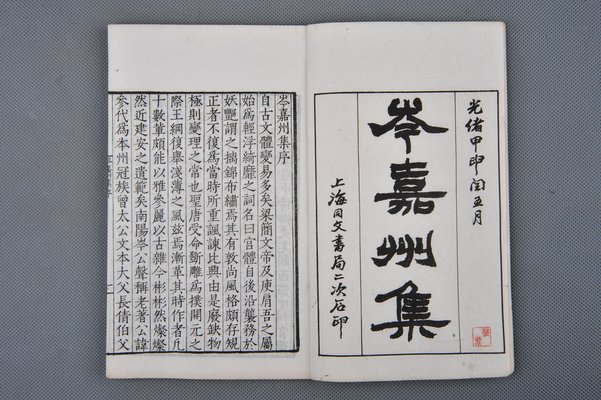 光緒甲申閏五月
岑嘉州集
上海同文書局二次石印
岑嘉州集序
自古文體變易多矣梁簡文帝及庾肩吾之屬
始爲輕浮綺靡之詞名曰宮體自後沿襲務於
妖艷謂之摛錦布繡焉其有敦尚風格頗存規
正者不復爲當時所重諷諫比興由是廢缺物
極則變理之當也聖唐受命斲雕爲樸開元之
際王綱復舉淺薄之風茲焉漸革其時作者凡
十數輩頗能以雅參麗以古雜今彬彬然燦燦
然近建安之遺範矣南陽岑公聲稱尤著公諱
參代爲本州冠族曾太公文本大父長倩伯父